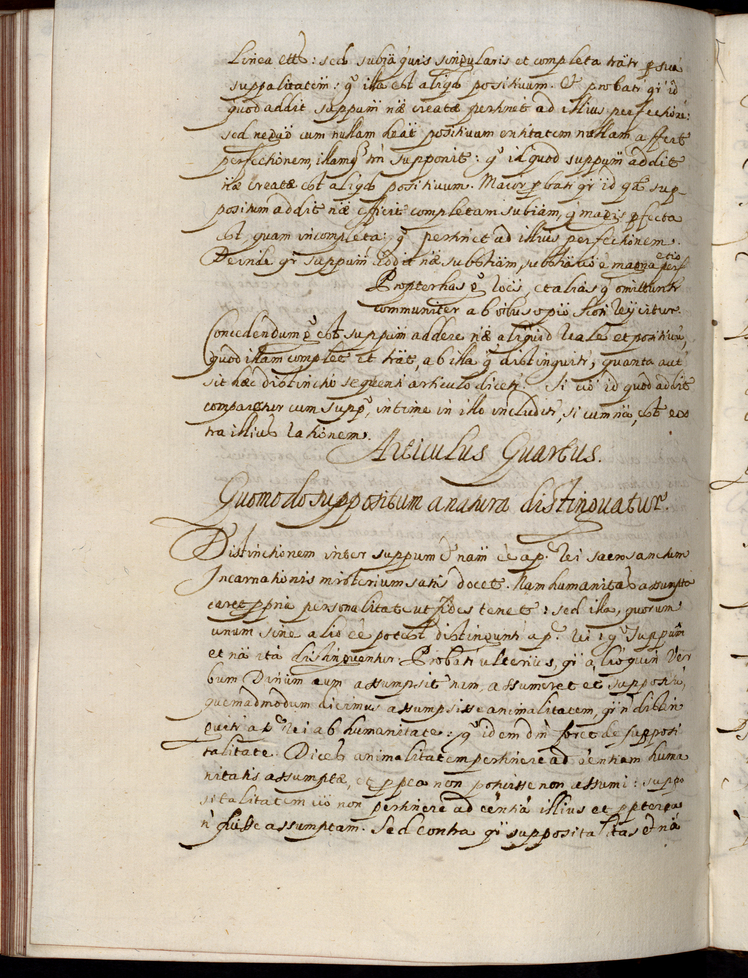 Linea ette: sed subia quis singularis et completa trãtr p sua
suppalitatem: gͦ illa est aliqd positiuum. Et probatr qr id
quod addit suppum næ creatæ pertinet ad illius perfectione:
sed negõ cum nullam heat positiuam entitatem nullam affert
perfectionem, illamq tñ supponit: gͦ id quod suppum addit
næ creatæ est aliqd positiuum. Maior pbatr qr id qd sup-
positum addit næ efficit completam subiam, q magis pfecta
est, quam incompleta: gͦ pertinet ad illius perfectionem.
Deinde qr suppum addit næ subsñam, subsña ē magna perf
ectio
Propter has gͦ loc, et alias q omittuntr
communiter ab oibus opio Scoti reijcitur.
Concedendum gͦ est suppum addere næ aliquid reale et positiuu,
quod illam complet et trãt, ab illa q distinguitr; quanta aut
sit hæc distinctio sequenti articulo dicetr. Si uo id quod addit
comparetur cum suppͦ, intime in illo includitr, si cum nã, est ex
tra illius rationem.
Articulus Quartus.
Quomodo suppositum a natura distinguatur.
Distinctionem inter suppum et nam ēē a p. rei sacrosanctum
Incarnationis misterium satis docet. Nam humanitas assumpta
caret ppria personalitate ut fides tenet: sed illa, quorum
unum sine alio ēē potest distinguntr a p. rei: gͦ suppum
et nã ita distinguentur. Probatr ulterius, qr alioquin Ver
bum Diuinum cum assumpsit nam, assumeret et suppositu,
quemadmodum dicimus assumpsisse animalitatem, qr ñ distin
guitr a p. rei ab humanitate: gͦ idem dm foret de supposi
talitate. Dices animalitatem pertinere ad ēentiam huma
nitatis assumptæ, et ppea non potuisse non assumi: suppo
sitalitatem uo non pertinere ad ēentiã illius et ppterea
ñ fuisse assumptam. Sed contra qr suppositalitas et nã